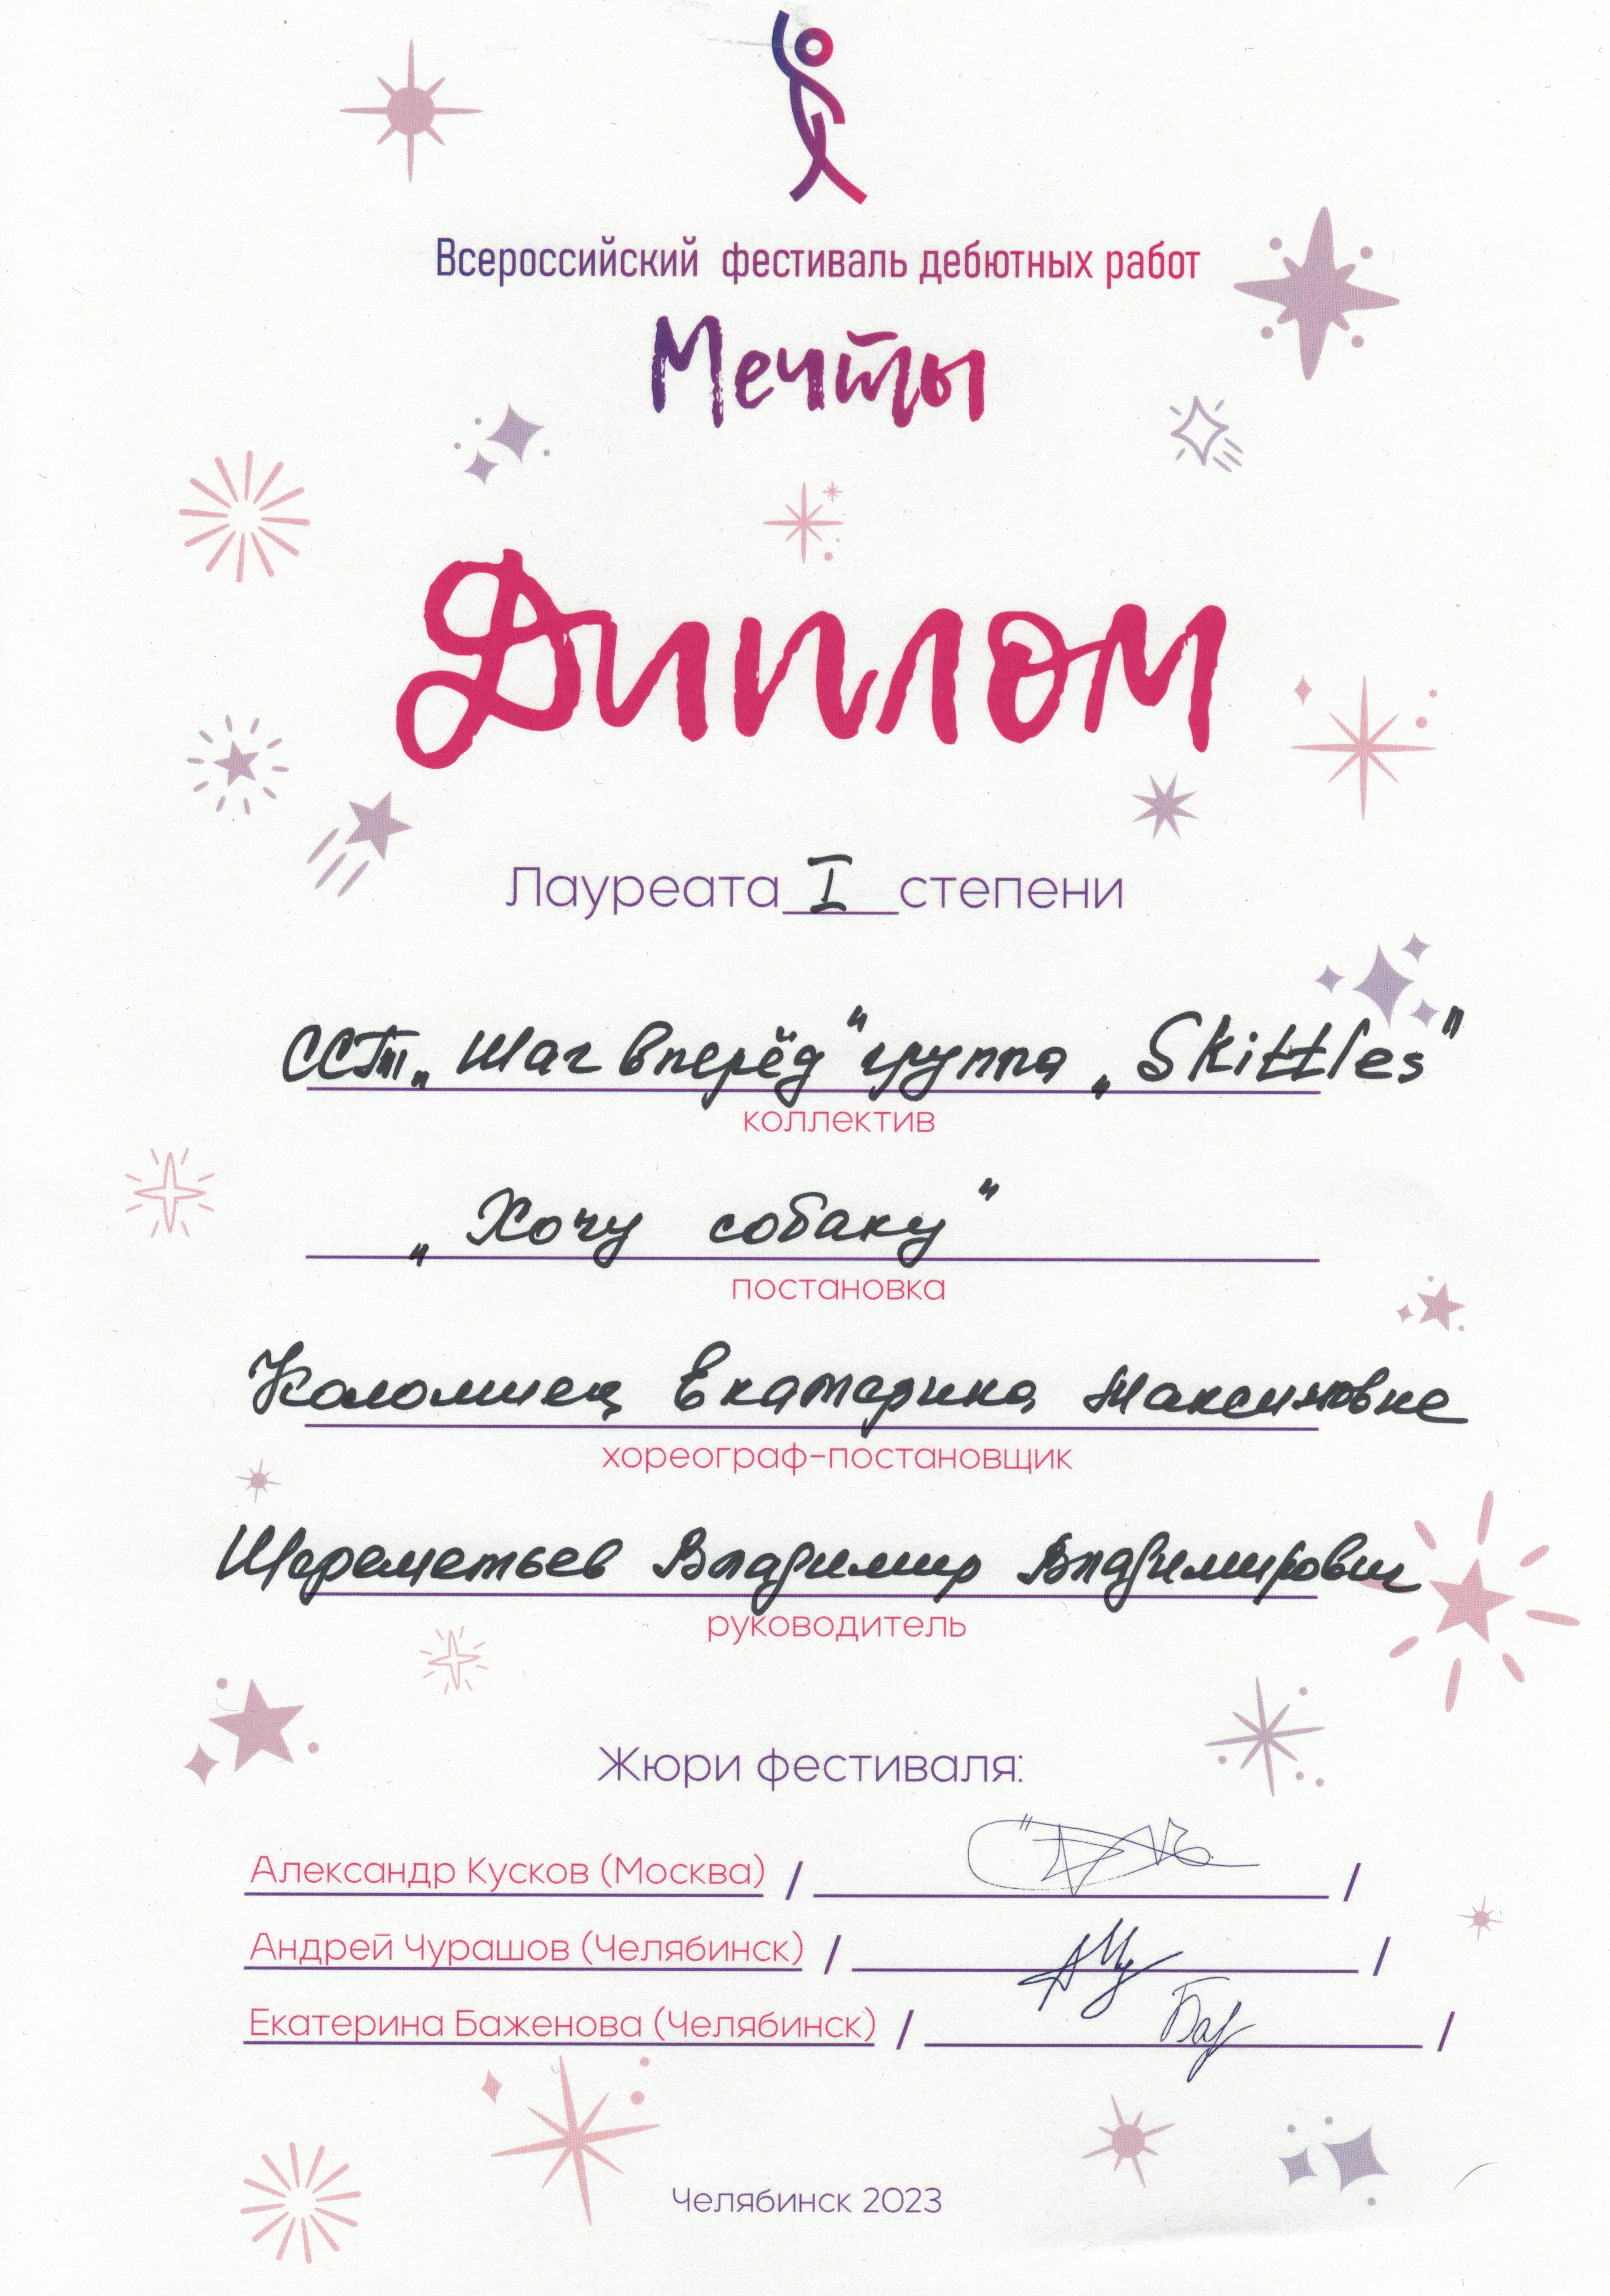 Всероссийский фестиваль дебютных работ
Мечты
Диплом
Лауреата I степени
ССТ „Шаг вперёд“ группа „Skittles“
коллектив
„Хочу собаку“
постановка
Коломиец Екатерина Максимовне
хореограф-постановщик
Шереметьев Владимир Владимирович
руководитель
Жюри фестиваля:
Александр Кусков (Москва) / /
Андрей Чурашов (Челябинск) / /
Екатерина Баженова (Челябинск) / /
Челябинск 2023